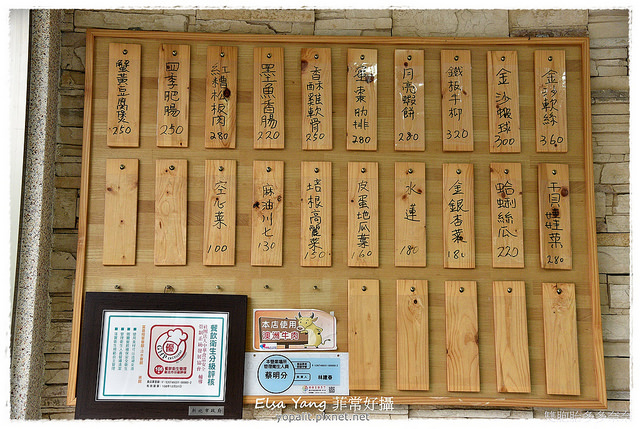 金沙軟絲 360
金沙蝦球 300
鐵板牛柳 320
月亮蝦餅 280
蜜棗肋排 280
香酥雞軟骨 250
墨魚香腸 220
紅糟松板肉 280
四季肥腸 250
蟹黃豆腐煲 250
干貝娃娃菜 280
蛤蜊絲瓜 220
金銀杏菜 180
水蓮 180
皮蛋地瓜葉 160
培根高麗菜 150
麻油川七 130
空心菜 100
餐飲衛生分級評核
優
新北市政府
本店使用
澳洲牛肉
蔡明分
林建春
Elsa Yang 菲常好攝
yopailt.pixnet.net